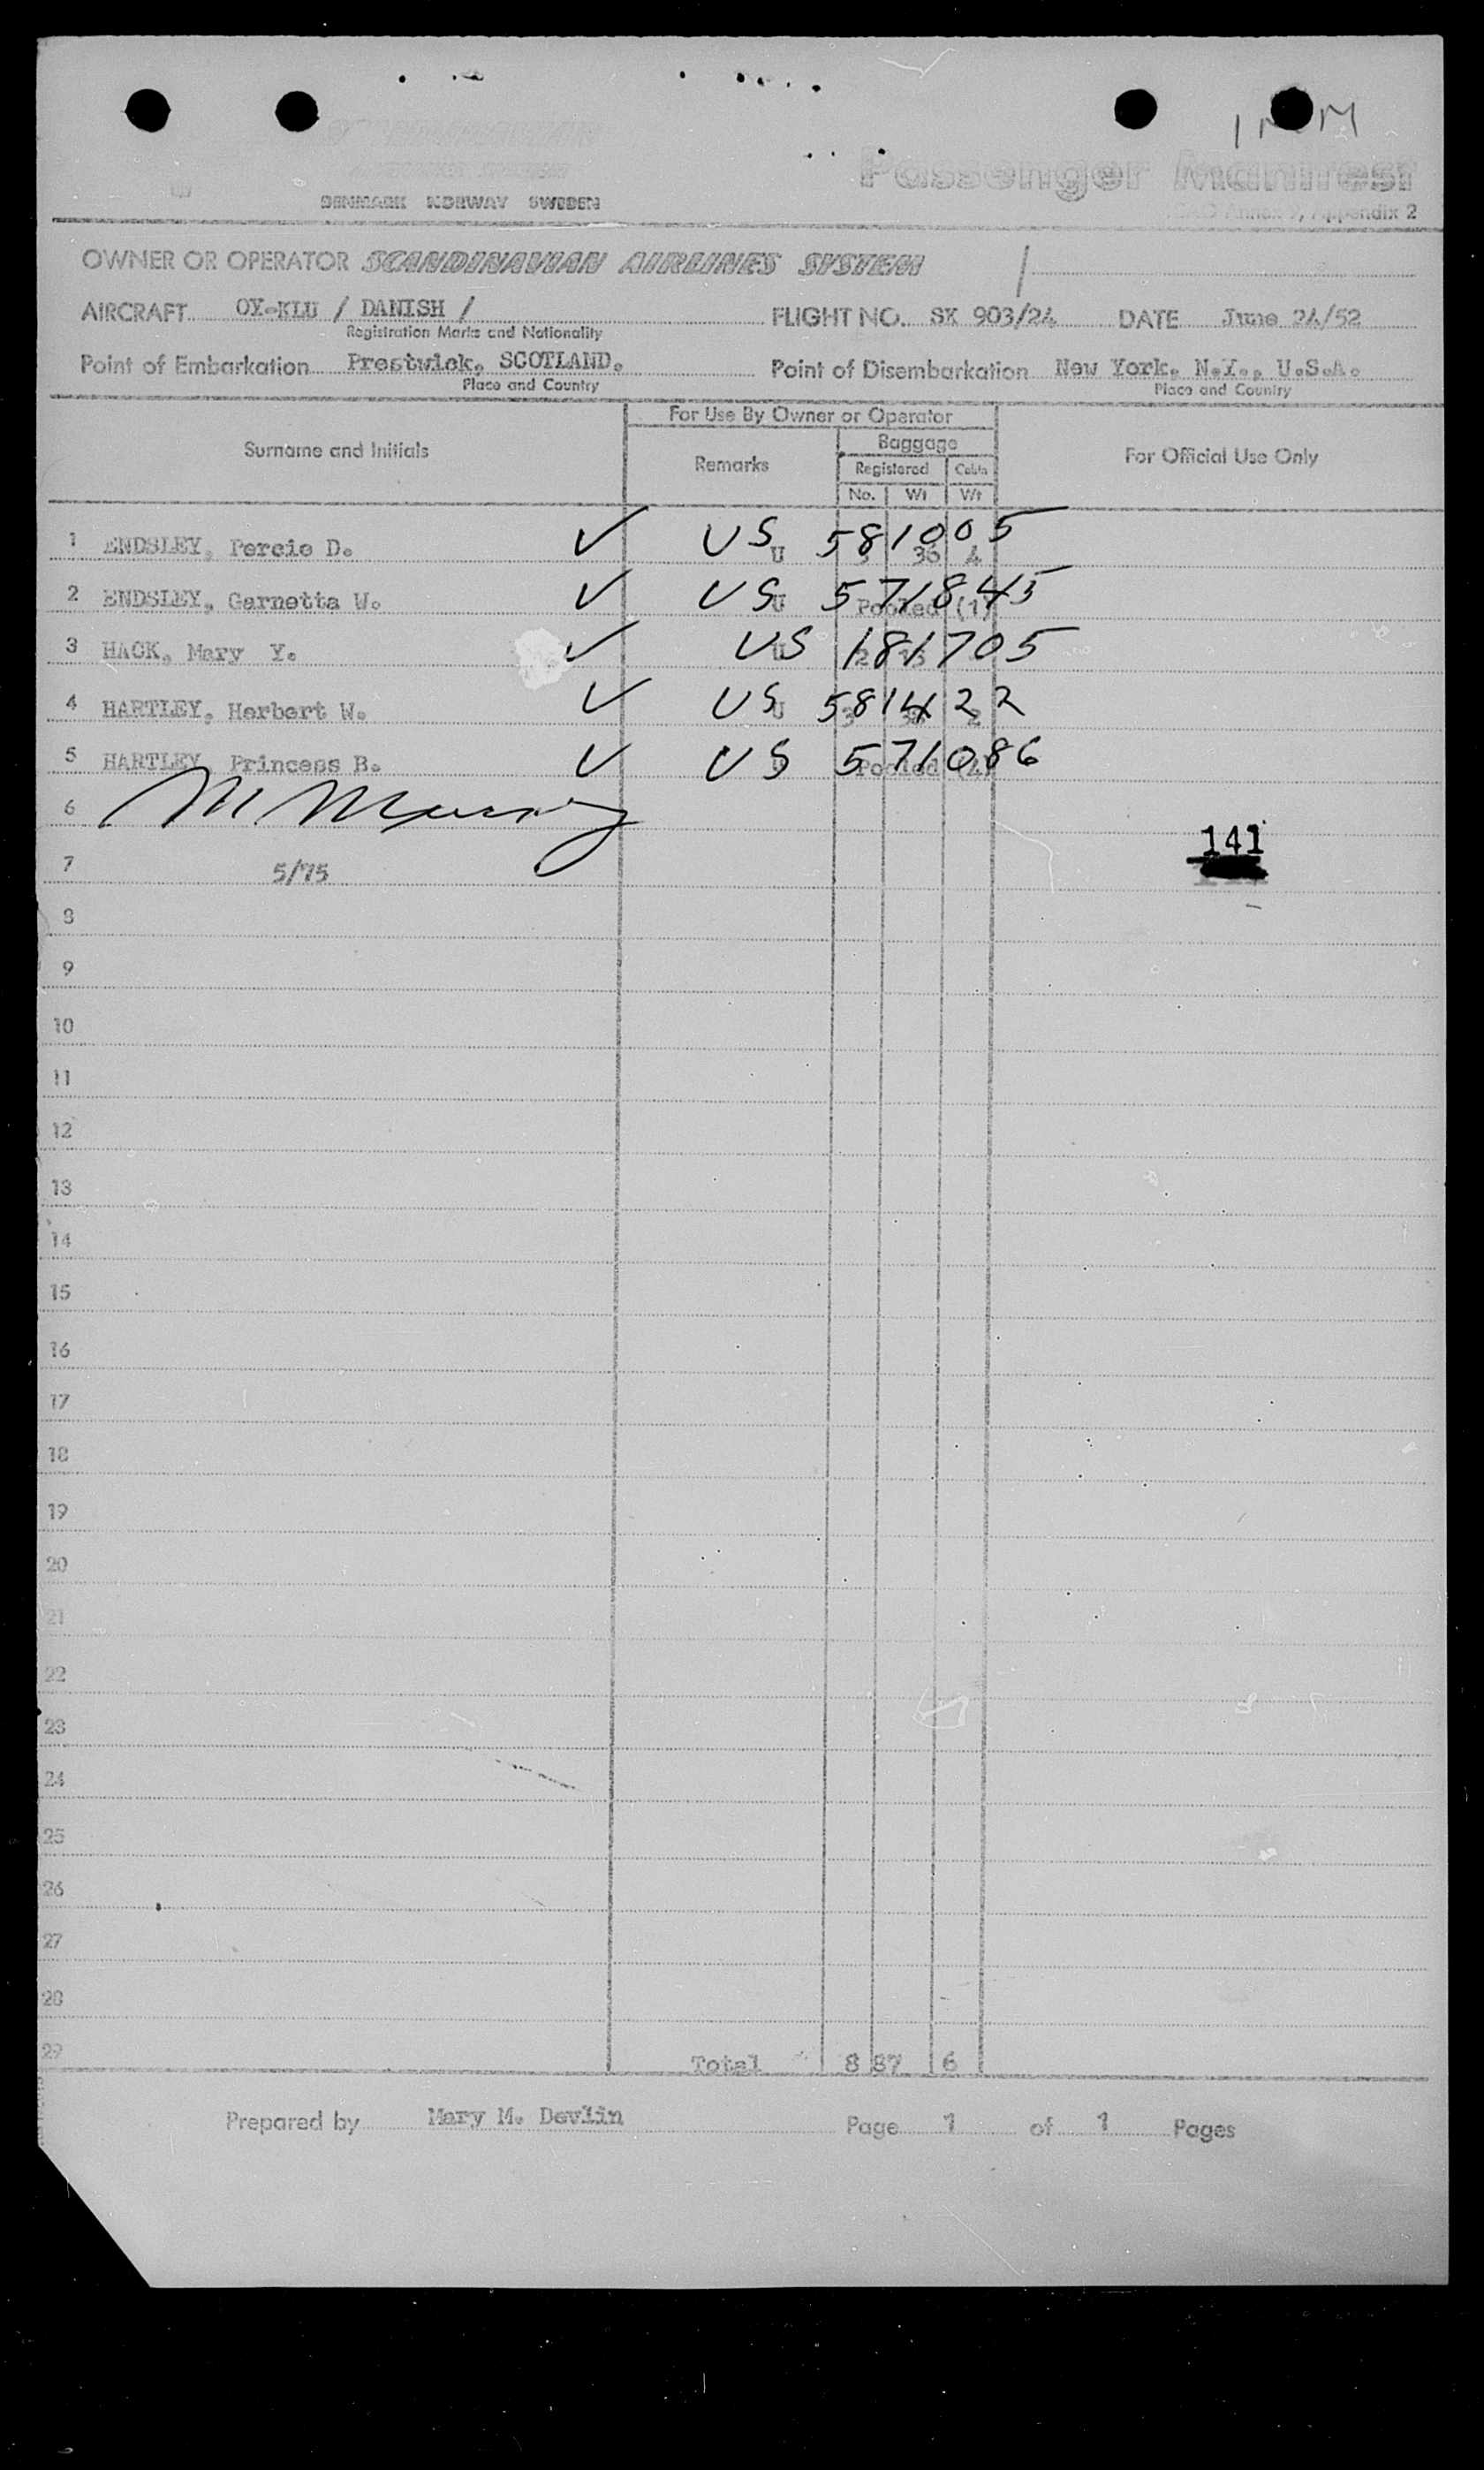 DENMARK NORWAY SWEDEN
Passenger Manifest
Appendix 2
OWNER OR OPERATOR SCANDINAVIAN AIRLINES SYSTEM
AIRCRAFT OY-KLU / DANISH / FLIGHT NO. SK 903/24 DATE June 24/52
Registration Marks and Nationality
Point of Embarkation Prestwick, SCOTLAND. Point of Disembarkation New York, N.Y., U.S.A.
Place and Country Place and Country
For Use By Owner or Operator
Surname and Initials Remarks Baggage For Official Use Only
Registered Cabin
No. Wt Wt
1 ENDSLEY, Percie D. ✓ US 581005 U 36 4
2 ENDSLEY, Garnetta W. ✓ US 571845 U Pooled (1)
3 HACK, Mary Y. ✓ US 181705
4 HARTLEY, Herbert W. ✓ US 581422 U 3
5 HARTLEY, Princess B. ✓ US 571086 Pooled
6 M
7 5/75 141
8
9
10
11
12
13
14
15
16
17
18
19
20
21
22
23
24
25
26
27
28
29 Total 8 87 6
Prepared by Mary M. Devlin Page 1 of 1 Pages